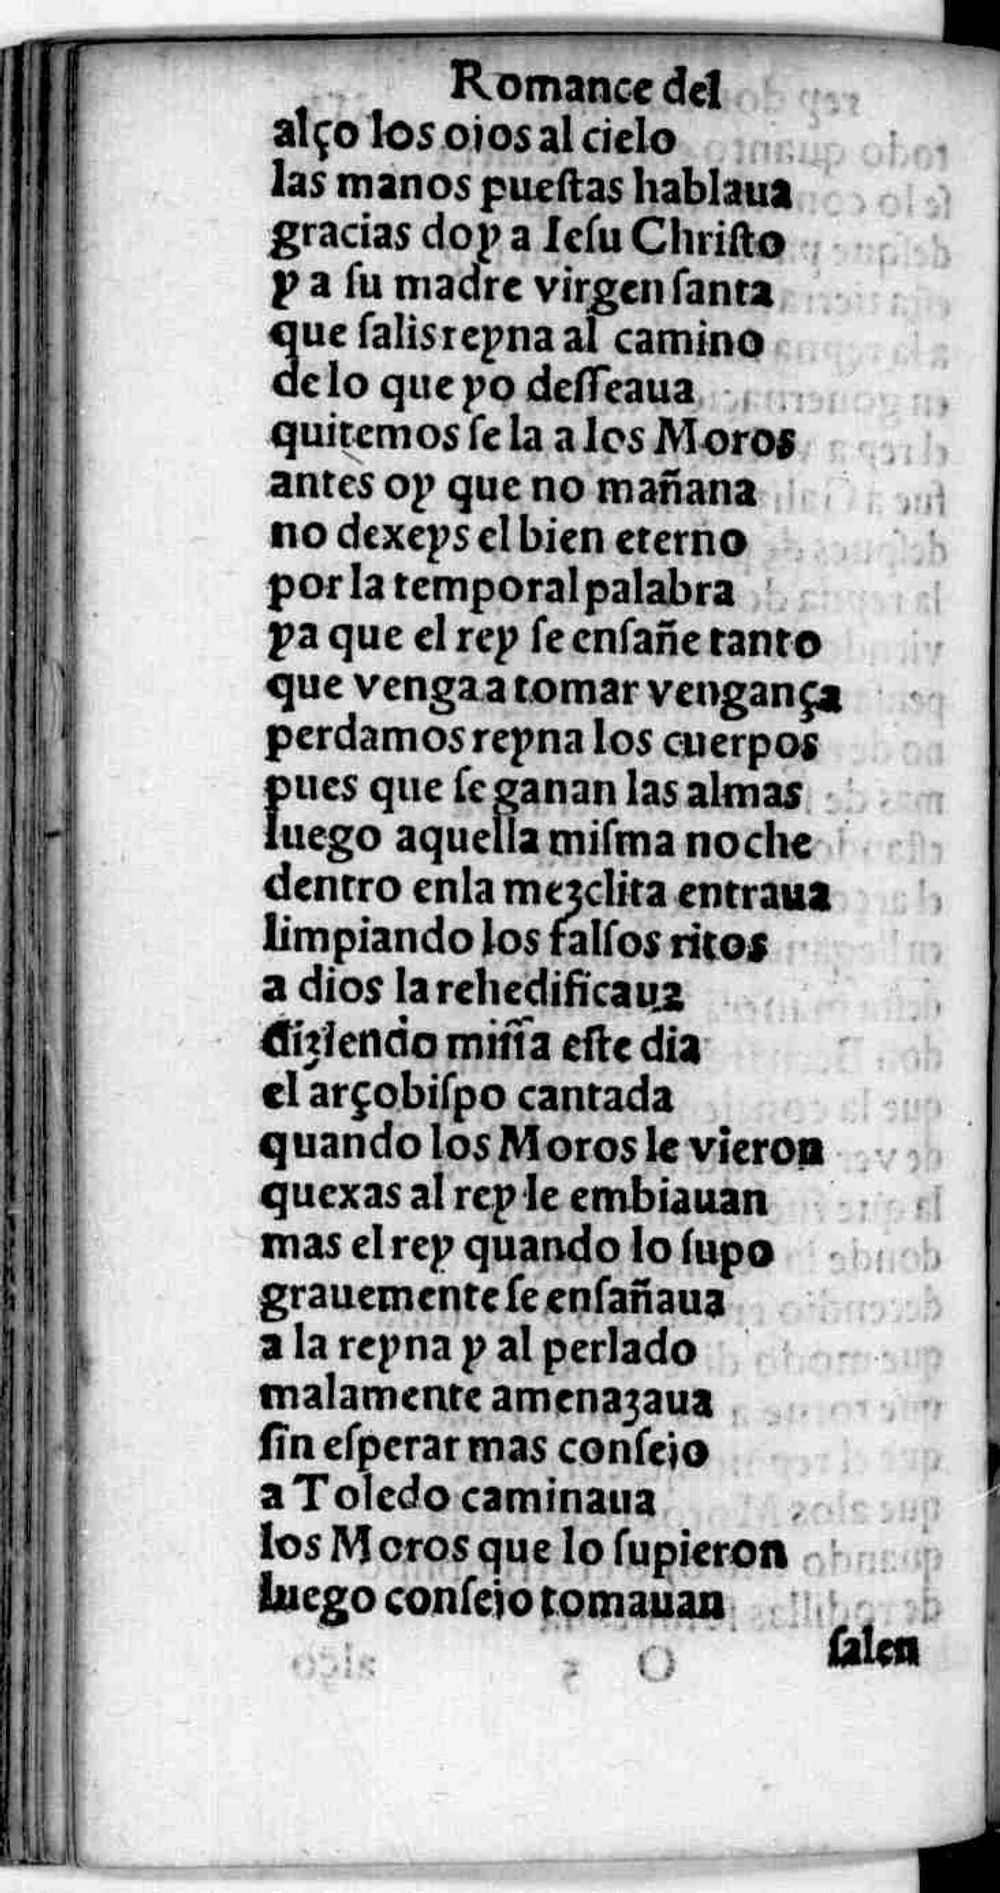 Romance del
alço los ojos al cielo
las manos pueſtas hablaua
gracias doy a Ieſu Chriſto
y a ſu madre virgen ſanta
que ſalis reyna al camino
de lo que yo deſſeaua
quitemos ſe la a los Moros
antes oy que no mañana
no dexeys el bien eterno
por la temporal palabra
ya que el rey ſe enſañe tanto
que venga a tomar vengança
perdamos reyna los cuerpos
pues que ſe ganan las almas
luego aquella miſma noche
dentro enla mezclita entraua
limpiando los falſos ritos
a dios la rehedificaua
diziendo miſſa eſte dia
el arçobiſpo cantada
quando los Moros le vieron
quexas al rey le embiauan
mas el rey quando lo ſupo
grauemente ſe enſañaua
a la reyna y al perlado
malamente amenazaua
ſin eſperar mas conſejo
a Toledo caminaua
los Moros que lo ſupieron
luego conſejo tomauan
ſalen